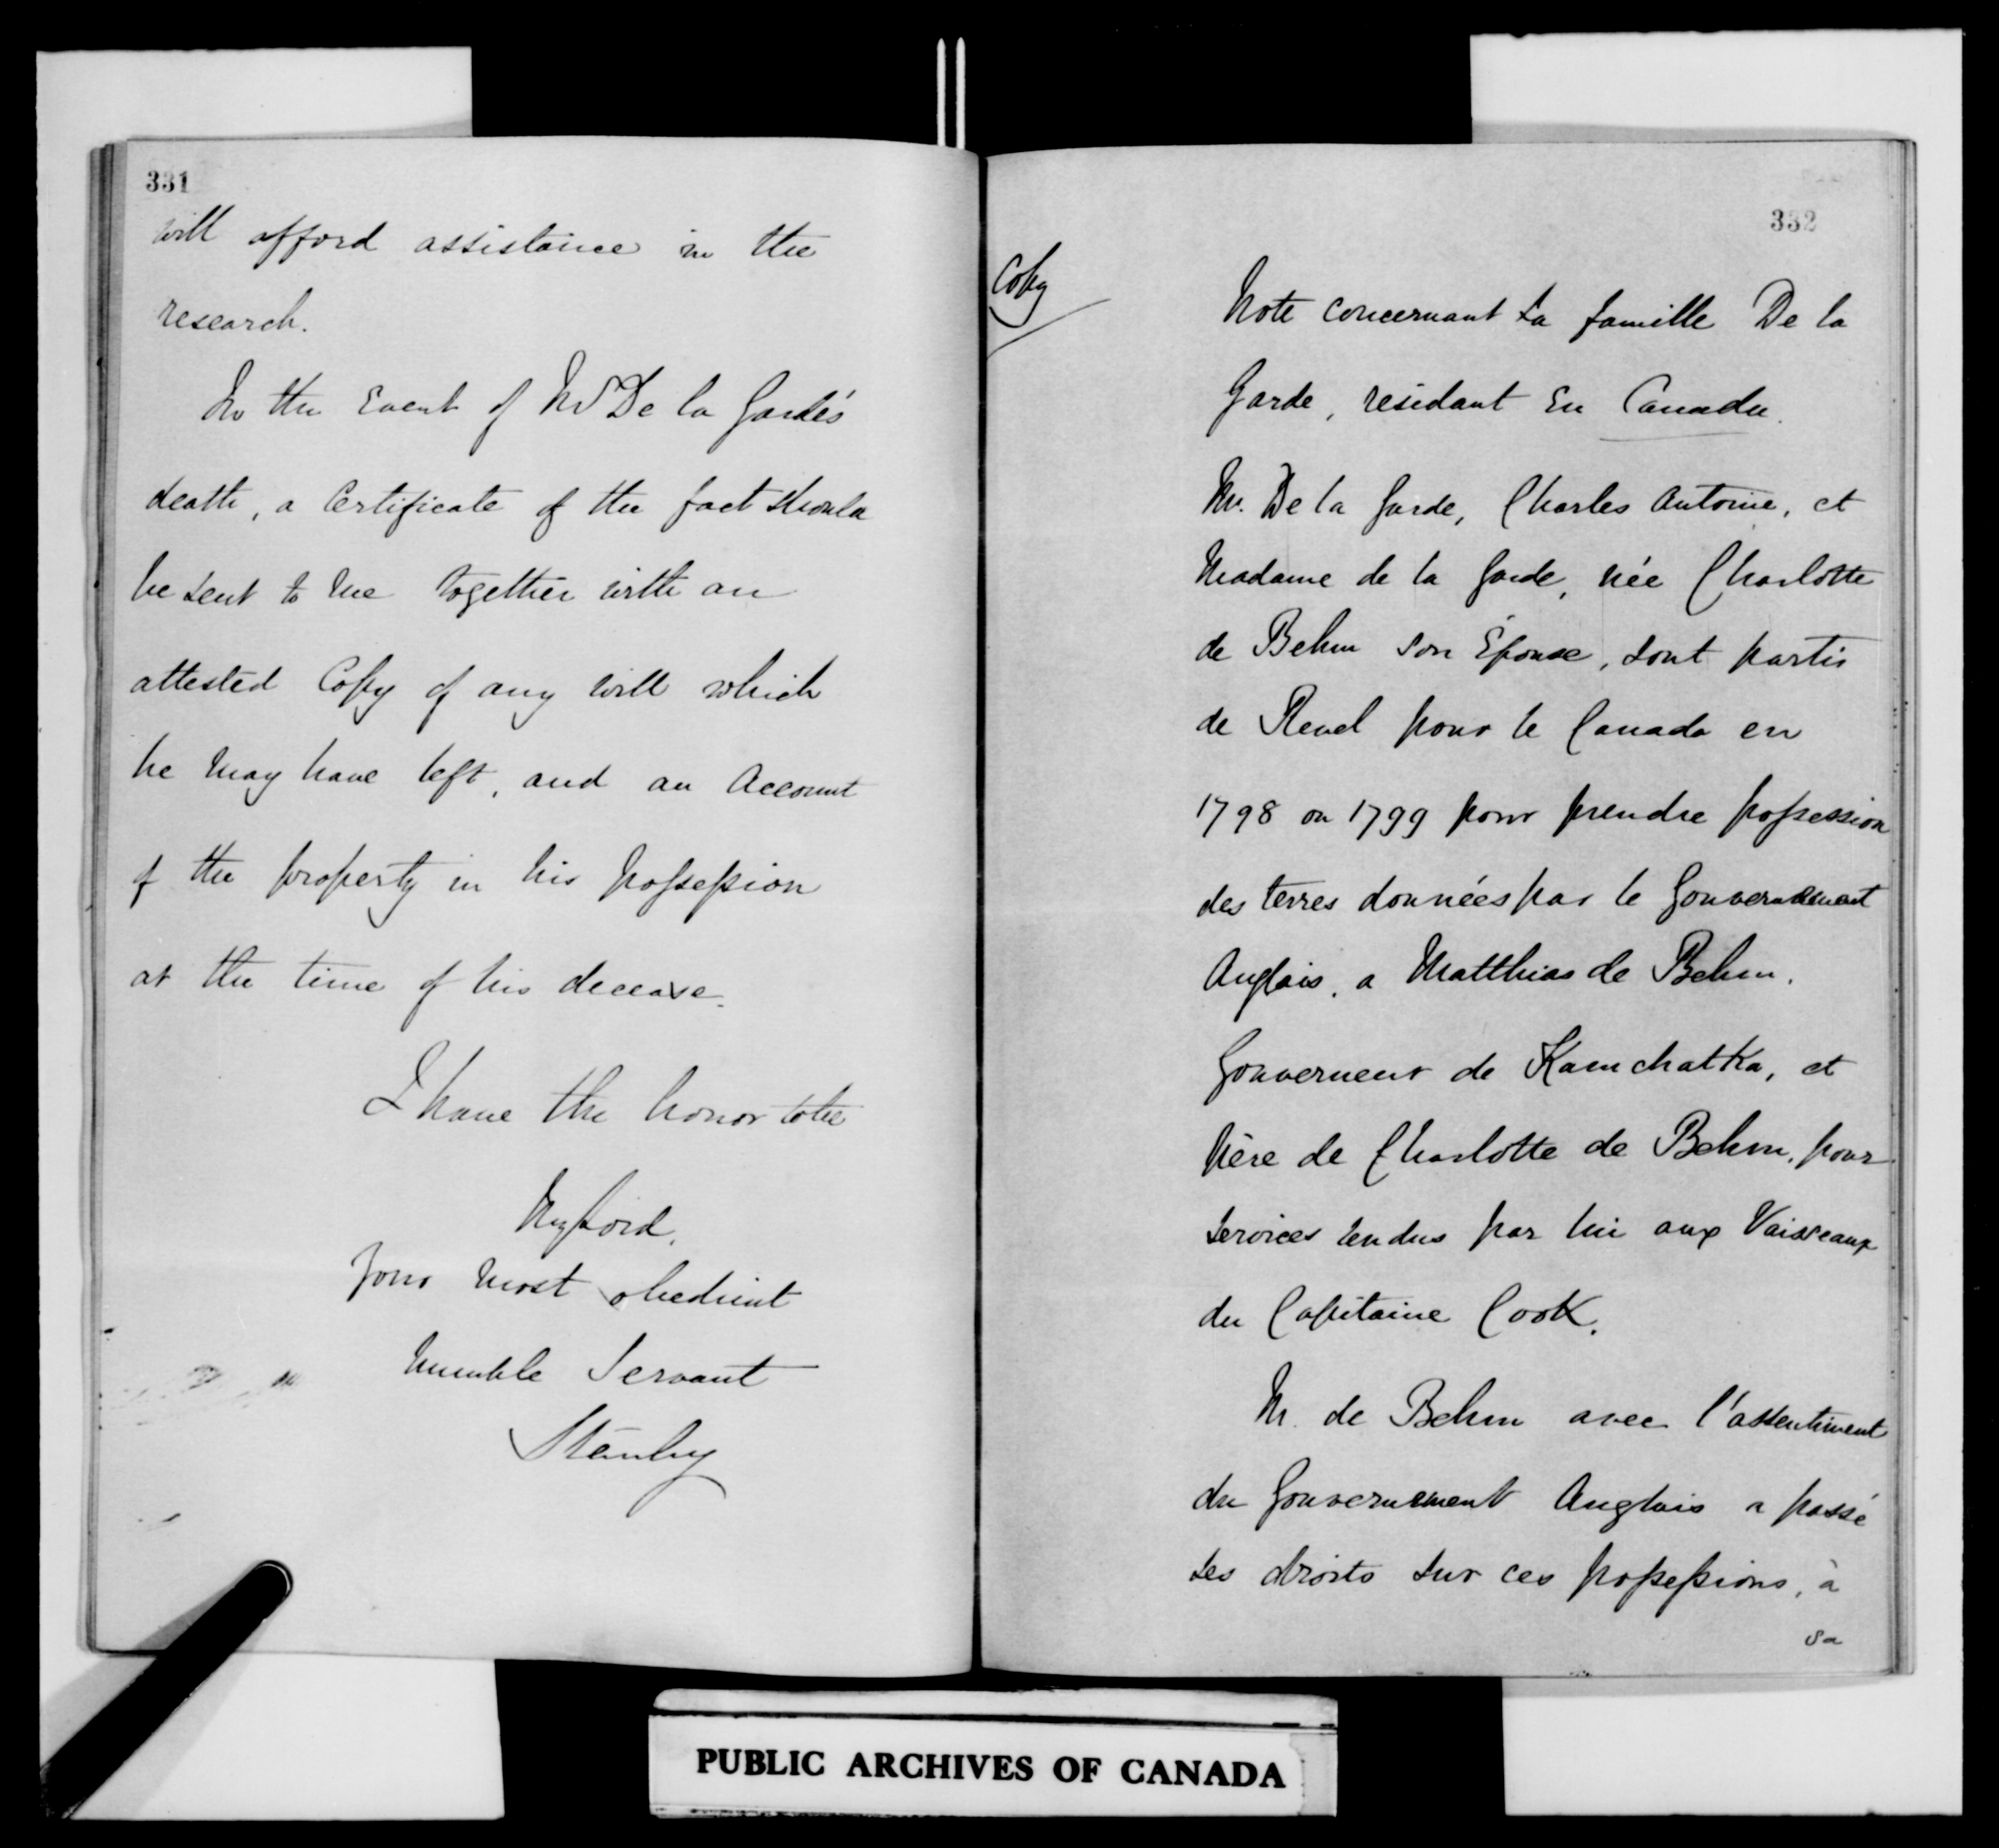 331
will afford assistance in the
research.
In the Event of Mr De la Garde's
death, a Certificate of the fact should
be sent to me together with an
attested Copy of any will which
he may have left, and an Account
of the property in his possession
at the time of his decease.
I have the honor to be
My Lord,
Your most obedient
humble Servant
Stanley
332
Copy
Note concernant La famille De la
Garde, residant En Canada.
Mr. De la Garde, Charles Antoine, et
Madame de la Garde, née Charlotte
de Behm son Épouse, sont partis
de Revel pour le Canada en
1798 ou 1799 pour prendre possession
des terres données par le Gouvernement
Anglais, a Matthias de Behm,
Gouverneur de Kamchatka, et
Père de Charlotte de Behm, pour
services rendus par lui aux Vaisseaux
du Capitaine Cook.
M. de Behm avec l'assentiment
du Gouvernement Anglais a passé
ses droits sur ces possessions, à
sa
PUBLIC ARCHIVES OF CANADA